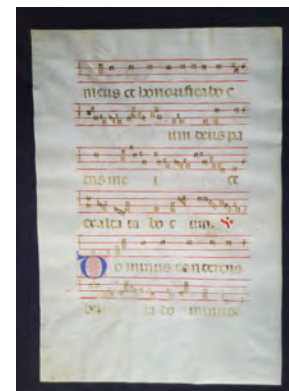 meus et honorificabo e
um deus pa
tris me i et
exalta bo e um. ℣
Dominus conterens
bella do minus